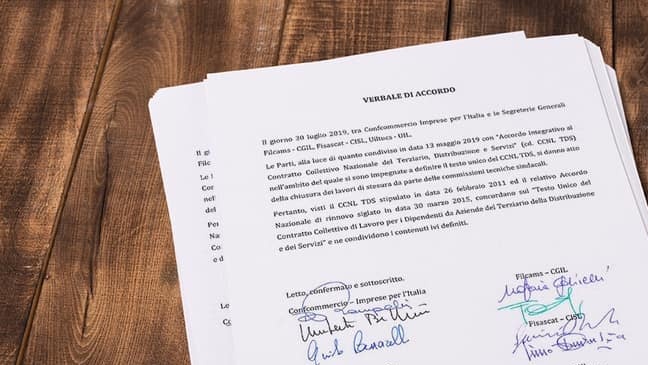 VERBALE DI ACCORDO
Il giorno 30 luglio 2019, tra Confcommercio Imprese per l'Italia e le Segreterie Generali
Filcams - CGIL, Fisascat - CISL, Uiltucs - UIL.
Le Parti, alla luce di quanto condiviso in data 13 maggio 2019 con "Accordo integrativo al
Contratto Collettivo Nazionale del Terziario, Distribuzione e Servizi" (cd. CCNL TDS)
nell'ambito del quale si sono impegnate a definire il testo unico del CCNL TDS, si danno atto
della chiusura dei lavori di stesura da parte delle commissioni tecniche sindacali.
Pertanto, visti il CCNL TDS stipulato in data 26 febbraio 2011 ed il relativo Accordo
Nazionale di rinnovo siglato in data 30 marzo 2015, concordano sul "Testo Unico del
Contratto Collettivo di Lavoro per i Dipendenti da Aziende del Terziario della Distribuzione
e dei Servizi" e ne condividono i contenuti ivi definiti.
Letto, confermato e sottoscritto.
Confcommercio – Imprese per l'Italia
Filcams – CGIL
Fisascat – CISL